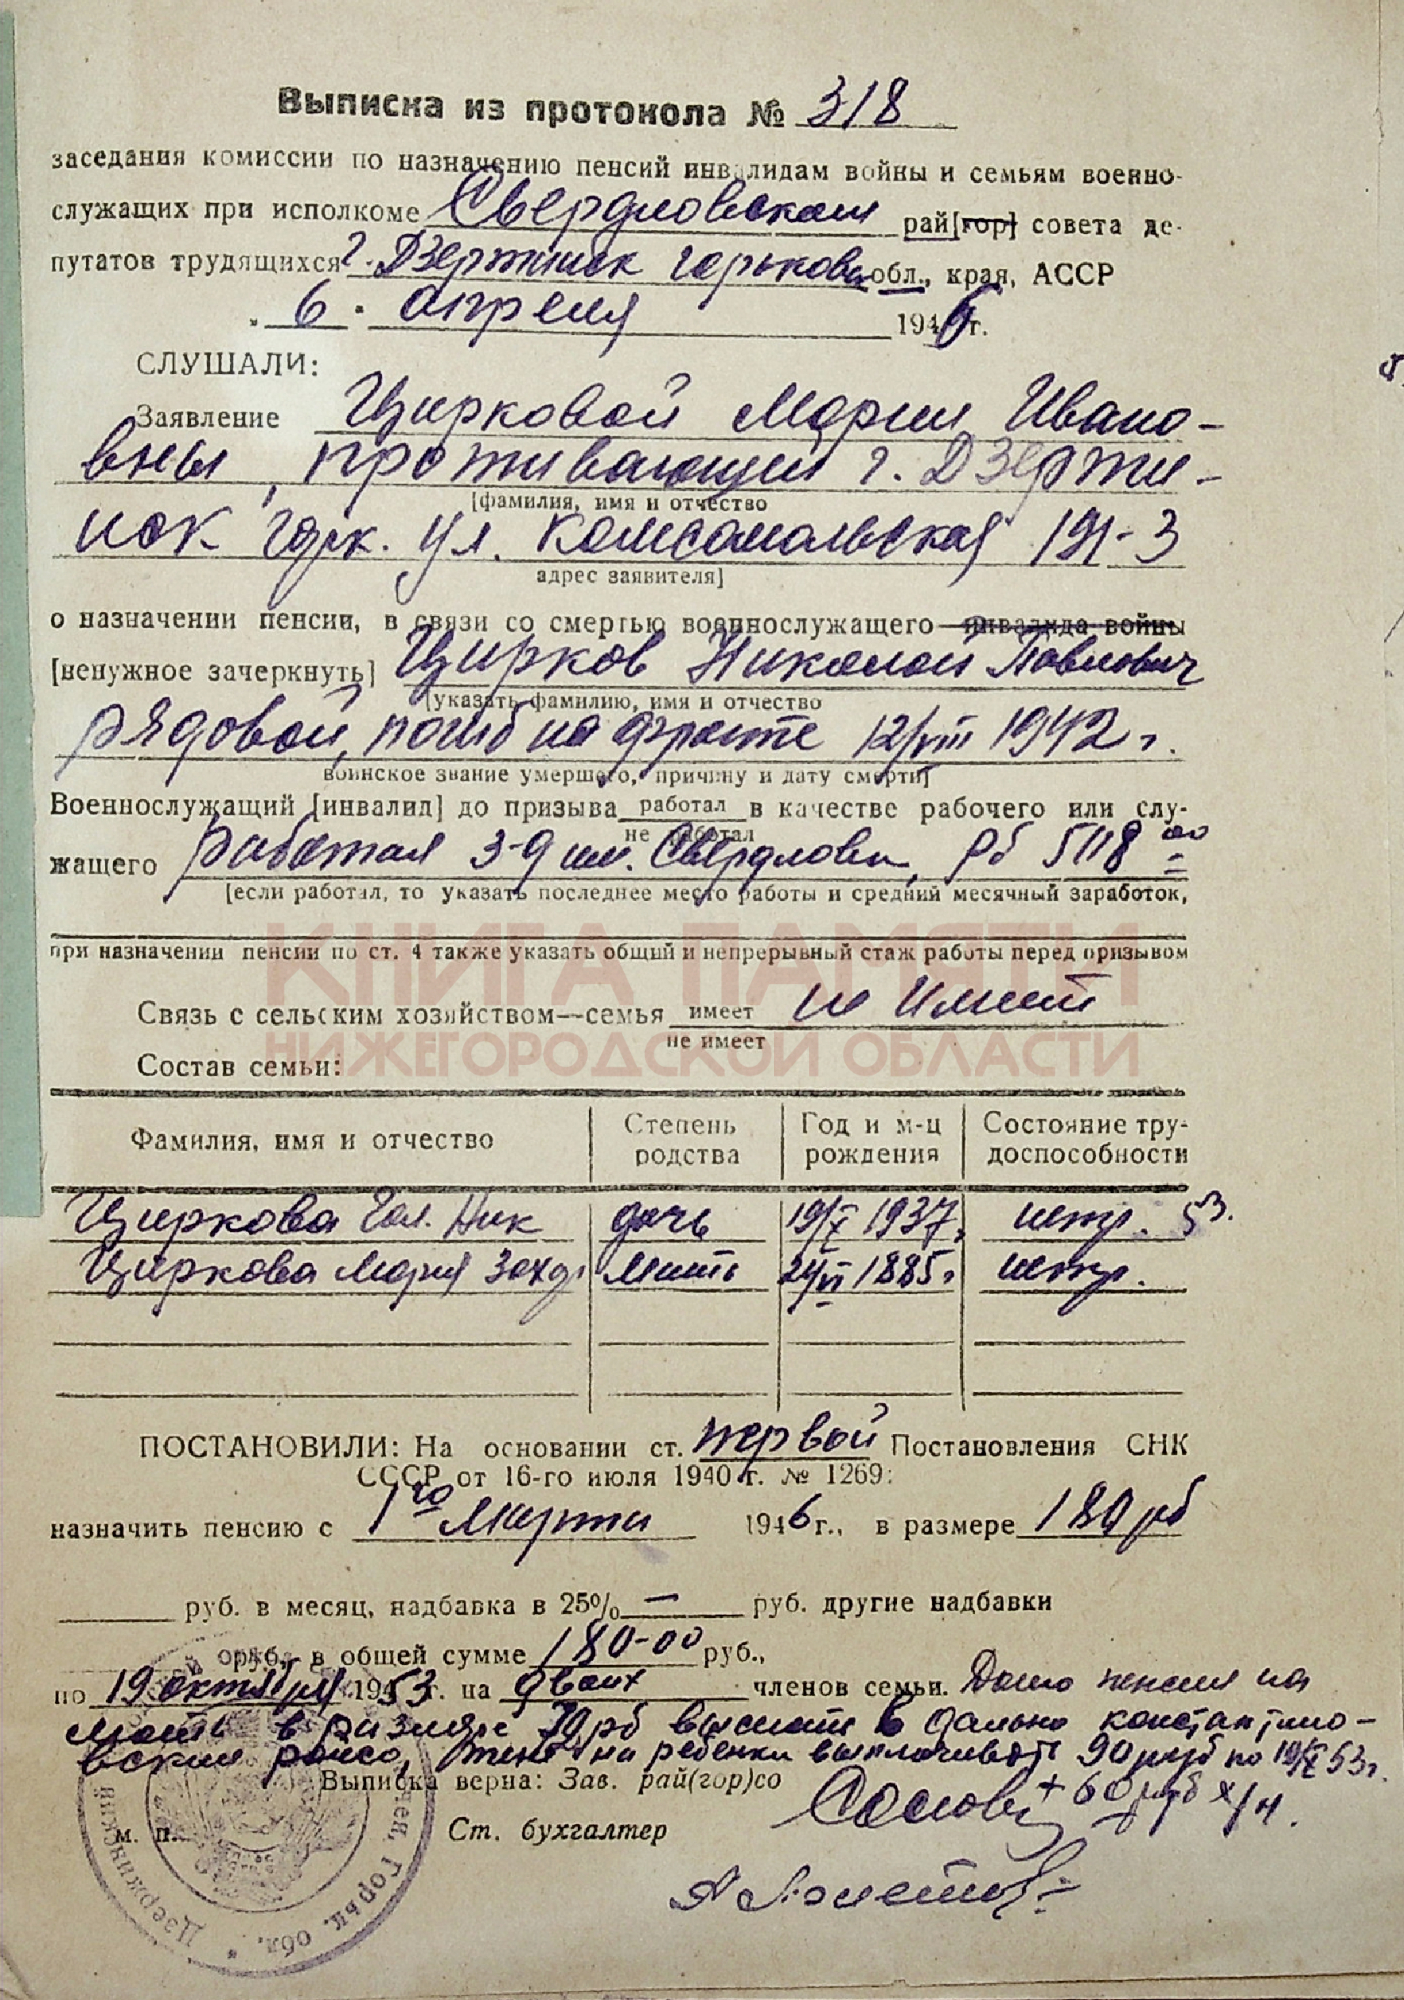 Выписка из протокола № 318
заседания комиссии по назначению пенсий инвалидам войны и семьям военно-
служащих при исполкоме Свердловском рай[гор] совета де-
путатов трудящихся г. Дзержинск Горьковс обл., края, АССР
„ 6 " апреля 1946 г.
СЛУШАЛИ:
Заявление Цирковой Марии Ивано-
вны, проживающей г. Дзержи-
[фамилия, имя и отчество
нск горьк. ул. Комсомольская 191-3
адрес заявителя]
о назначении пенсии, в связи со смертью военнослужащего инвалида войны
[ненужное зачеркнуть] Цирков Николай Павлович
[указать фамилию, имя и отчество
рядовой, погиб на фронте 12/VIII 1942 г.
воинское звание умершего, причину и дату смерти]
Военнослужащий [инвалид] до призыва работал в качестве рабочего или слу-
не работал
жащего работал з-д им. Свердлова, рб 508 00
[если работал, то указать последнее место работы и средний месячный заработок,
при назначении пенсии по ст. 4 также указать общий и непрерывный стаж работы перед призывом
КНИГА ПАМЯТИ
Связь с сельским хозяйством—семья имеет не имеет
не имеет
НИЖЕГОРОДСКОЙ ОБЛАСТИ
Состав семьи:
Фамилия, имя и отчество Степень родства Год и м-ц рождения Состояние тру-доспособности
Циркова Гал. Ник дочь 19/X 1937г. нетр. 53.
Циркова Мария Захар мать 24/VI 1885г нетр.
ПОСТАНОВИЛИ: На основании ст. первой Постановления СНК
СССР от 16-го июля 1940 г. № 1269:
назначить пенсию с 1го Марта 1946 г., в размере 180 рб
руб. в месяц, надбавка в 25% — руб. другие надбавки
руб., в общей сумме 180-00 руб.,
по 19 октября 1953 г. на двоих членов семьи. Доля пенсии на
мать в размере 90 рб высылать в Дально константино-
вский райсо, жене на ребенка выплачивать 90 руб по 19/X 53г.
Выписка верна: Зав. рай(гор)со + 60 руб х/н.
м. п. Ст. бухгалтер
Горьк. обл. * Дзержинский